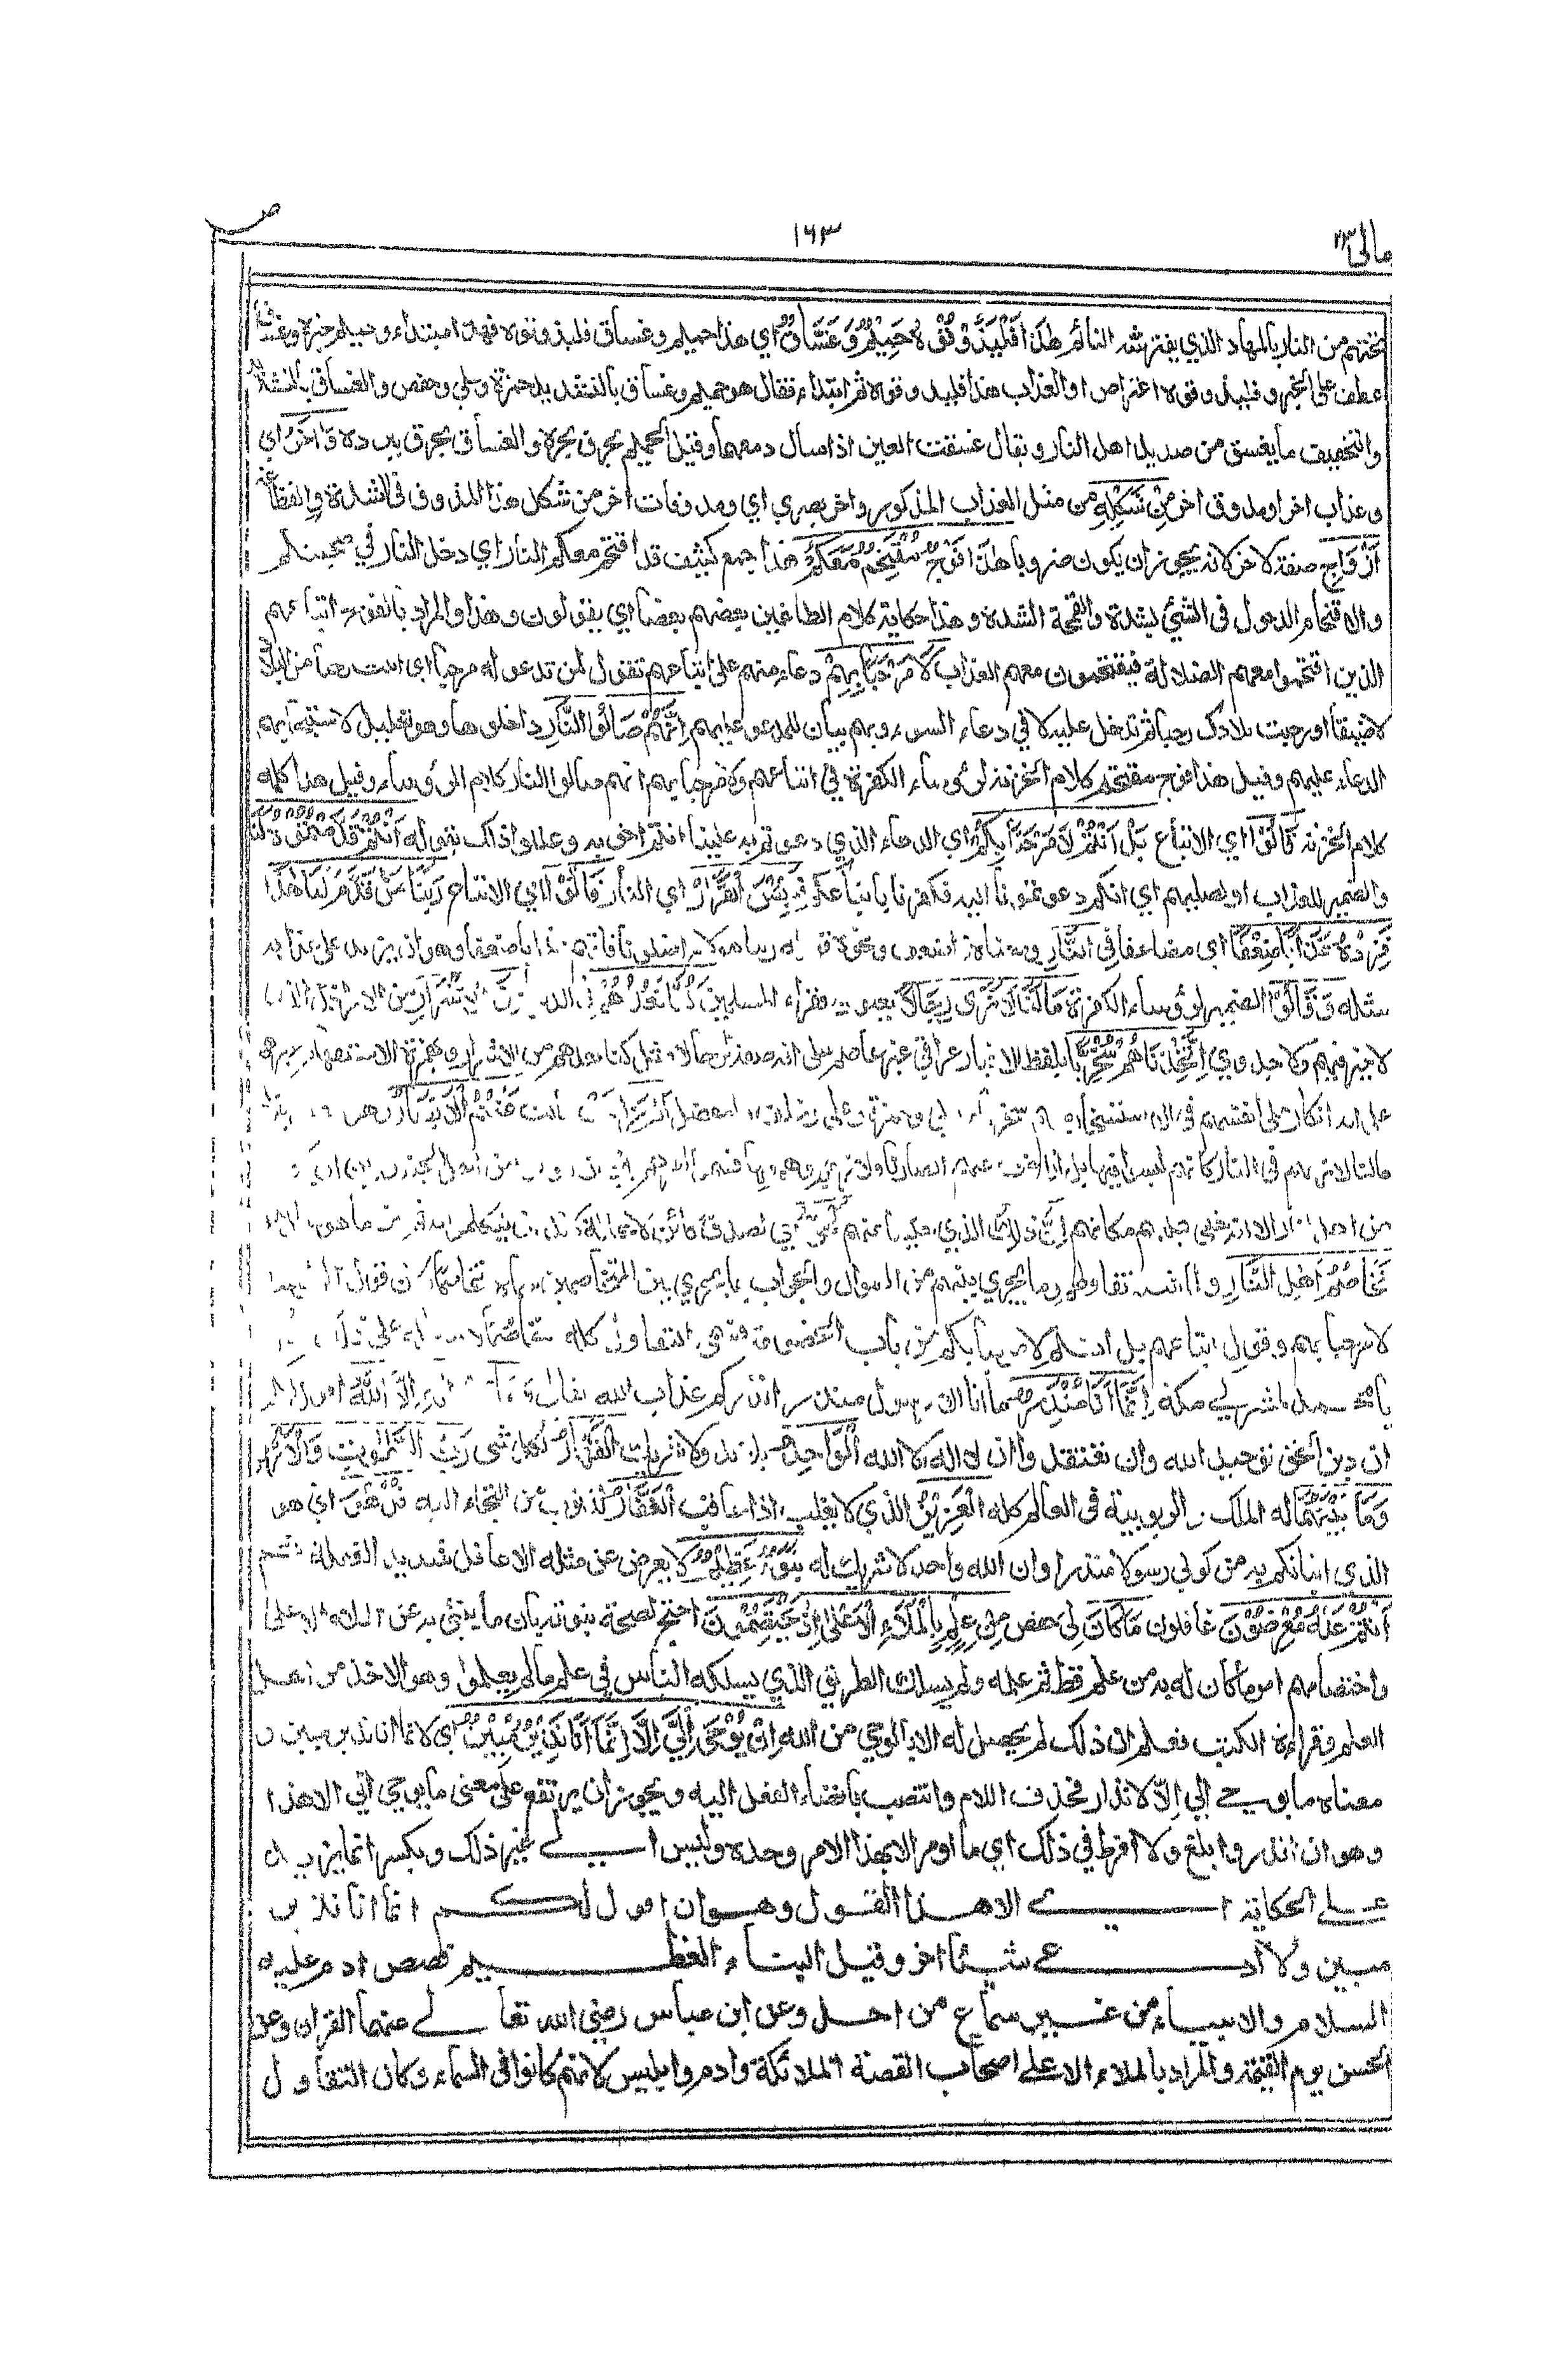 ومالي ٢٣
١٦٣
ص
تحتهم من النار بالمهاد الذي يفترشه النائم هٰذَا فَلْيَذُوْقُوْهُ حَمِيْمٌ وَّغَسَّاقٌ اي هذا حميم وغساق فليذوقوه فهذا مبتداء وحميم خبره وغساق
عطف على الخبر و فليذوقوه اعتراض او العذاب هذا فليذوقوه ثم ابتداء فقال هو حميم وغساق بالتشديد حمزة وعلي وحفص والغساق بالتشديد
والتخفيف ما يغسق من صديد اهل النار ويقال غسقت العين اذا سال دمعها وقيل الحميم يحرق بحره والغساق يحرق ببرده وَاٰخَرُ اي
وعذاب اخر او مذوق اخر مِنْ شَكْلِهٖ من مثل العذاب المذكور واخر بصري اي ومذوقات اخر من شكل هذا المذوق في الشدة والفظاعة
اَزْوَاجٌ صفة لاخر لانه يجوز ان يكون ضروبا هٰذَا فَوْجٌ مُّقْتَحِمٌ مَّعَكُمْ هذا جمع كثيف قد اقتحم معكم النار اي دخل النار في صحبتكم
والاقتحام الدخول في الشيء بشدة والقحمة الشدة وهذا حكاية كلام الطاغين بعضهم بعضا اي يقولون وهذا والمراد بالفوج اتباعهم
الذين اقتحموا معهم الضلالة فيقتحمون معهم العذاب لَا مَرْحَبًا بِهِمْ دعاء منهم على اتباعهم تقول لمن تدعو له مرحبا اي اتيت رحبا من البلاد
لا ضيقا او رحبت بلادك رحبا ثم تدخل عليه لا في دعاء السوء وبهم بيان للمدعو عليهم اِنَّهُمْ صَالُوا النَّارِ داخلوها وهو تعليل لاستيجابهم
الدعاء عليهم وقيل هذا فوج مقتحم كلام الخزنة لرؤساء الكفرة في اتباعهم ولا مرحبا بهم انهم صالوا النار كلام الرؤساء وقيل هذا كله
كلام الخزنة قَالُوْا اي الاتباع بَلْ اَنْتُمْ لَا مَرْحَبًا بِكُمْ اي الدعاء الذي دعوتم به علينا انتم احق به وعللوا ذلك بقوله اَنْتُمْ قَدَّمْتُمُوْهُ لَنَا
والضمير للعذاب او لصليهم اي انكم دعوتمونا اليه فكفرنا باتباعكم فَبِئْسَ الْقَرَارُ اي النار قَالُوْا اي الاتباع رَبَّنَا مَنْ قَدَّمَ لَنَا هٰذَا
فَزِدْهُ عَذَابًا ضِعْفًا اي مضاعفا فِي النَّارِ ومعناه ذا ضعف ونحوه قوله ربنا هؤلاء اضلونا فاتهم عذابا ضعفا وهو ان يزيد على عذابه
مثله وَقَالُوْا الضمير لرؤساء الكفرة مَا لَنَا لَا نَرٰى رِجَالًا يعنون فقراء المسلمين كُنَّا نَعُدُّهُمْ في الدنيا مِنَ الْاَشْرَارِ من الارذال الذين
لا خير فيهم ولا جدوى اَتَّخَذْنَاهُمْ سُخْرِيًّا بلفظ الاخبار عراقي غير عاصم على انه صفة لرجالا مثل كنا نعدهم من الاشرار وبهمزة الاستفهام غيرهم
على انه انكار على انفسهم في الاستسخار منهم سخريا مدني وحمزة وعلي اَمْ زَاغَتْ مالت عَنْهُمُ الْاَبْصَارُ
مالنا لا نراهم في النار كانهم ليسوا فيها بل ازاغت عنهم ابصارنا فلا نراهم وهم فيها
من اهل النار الا انه خفي عليهم مكانهم اِنَّ ذٰلِكَ الذي حكينا عنهم لَحَقٌّ اي لصدق كائن لا محالة لا بد ان يتكلموا به ثم بين ما هو
تَخَاصُمُ اَهْلِ النَّارِ ولما شبه تقاولهم وما يجري بينهم من السؤال والجواب بما يجري بين المتخاصمين سماه تخاصما ولان قول الرؤساء
لا مرحبا بهم وقول اتباعهم بل انتم لا مرحبا بكم من باب الخصومة فسمى التقاول كله تخاصما
يا محمد لمشركي مكة اِنَّمَا اَنَا مُنْذِرٌ ما انا الا رسول منذر انذركم عذاب الله تعالى وَمَا مِنْ اِلٰهٍ اِلَّا اللّٰهُ
ان دين الحق توحيد الله وان تعتقدوا ان لا اله الا الله الْوَاحِدُ بلا ند ولا شريك الْقَهَّارُ لكل شيء رَبُّ السَّمٰوٰتِ وَالْاَرْضِ
وَمَا بَيْنَهُمَا له الملك والربوبية في العالم كله الْعَزِيْزُ الذي لا يغلب اذا عاقب الْغَفَّارُ لذنوب من التجاء اليه قُلْ هُوَ اي هو
الذي انبأتكم به من كوني رسولا منذرا وان الله واحد لا شريك له نَبَؤٌا عَظِيْمٌ لا يعرض عن مثله الا غافل شديد الغفلة ثم
اَنْتُمْ عَنْهُ مُعْرِضُوْنَ غافلون مَا كَانَ لِيَ حفص مِنْ عِلْمٍ بِالْمَلَاِ الْاَعْلٰى اِذْ يَخْتَصِمُوْنَ احتج لصحة نبوته بان ما ينبئ به عن الملاء الاعلى
واختصامهم امر ما كان له به من علم قط ثم علمه ولم يسلك الطريق الذي يسلكه الناس في علم ما لم يعلموا وهو الاخذ من اهل
العلم وقراءة الكتب فعلم ان ذلك لم يحصل له الا بالوحي من الله اِنْ يُوْحٰى اِلَيَّ اِلَّا اَنَّمَا اَنَا نَذِيْرٌ مُّبِيْنٌ اي لانما انا نذير مبين و
معناه ما يوحى الي الا للانذار فحذف اللام وانتصب بافضاء الفعل اليه ويجوز ان يرتفع على معنى ما يوحى الي الا هذا
وهو ان انذر وابلغ ولا افرط في ذلك اي ما اومر الا بهذا الامر وحده وليس الي غير ذلك وبكسر انما يزيد
على الحكاية اي الا هذا القول وهو ان اقول لكم انما انا نذير
مبين ولا ادعي شيئا اخر وقيل النباء العظيم قصص ادم عليه
السلام والانبياء من غير سماع من احد وعن ابن عباس رضي الله تعالى عنهما القران وعن
الحسن يوم القيٰمة والمراد بالملاء الاعلى اصحاب القصة الملائكة وادم وابليس لانهم كانوا في السماء وكان التقاول